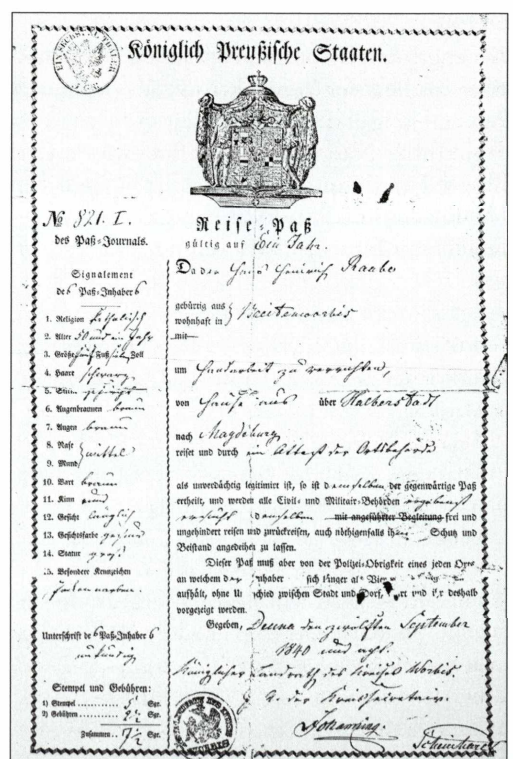 Königlich Preußische Staaten.
No 821. I.
des Paß-Journals.
Signalement
des Paß-Inhabers
1. Religion katholisch
2. Alter 50 und ein Jahr
3. Größe fünf Fuß Zoll
4. Haare schwarz
5. Stirn
6. Augenbraunen braun
7. Augen braun
8. Nase } mittel
9. Mund
10. Bart braun
11. Kinn rund
12. Gesicht länglich
13. Gesichtsfarbe gesund
14. Statur groß
15. Besondere Kennzeichen
Unterschrift des Paß-Inhabers
unkundig
Stempel und Gebühren:
1) Stempel 5 Sgr.
2) Gebühren 2½ Sgr.
Zusammen 7½ Sgr.
Reise-Paß
gültig auf Ein Jahr.
Da der Heinrich Raabe
gebürtig aus } Breitenworbis
wohnhaft in
mit
um Handarbeit zu verrichten,
von Hause aus über Halberstadt
nach Magdeburg
reiset und durch ein Attest der Ortsbehörde
als unverdächtig legitimirt ist, so ist demselben der gegenwärtige Paß
ertheilt, und werden alle Civil- und Militair-Behörden ergebenst
ersucht demselben mit angeführter Begleitung frei und
ungehindert reisen und zurückreisen, auch nöthigenfalls Schutz und
Beistand angedeihen zu lassen.
Dieser Paß muß aber von der Polizei-Obrigkeit eines jeden Ortes
an welchem der Inhaber sich länger als
aufhält, ohne Unterschied zwischen Stadt und Dorf, und deshalb
vorgezeigt werden.
Gegeben, Deuna den zwölften September
1840
Königlicher Landrath des Kreises Worbis.
der Kreissecretair.